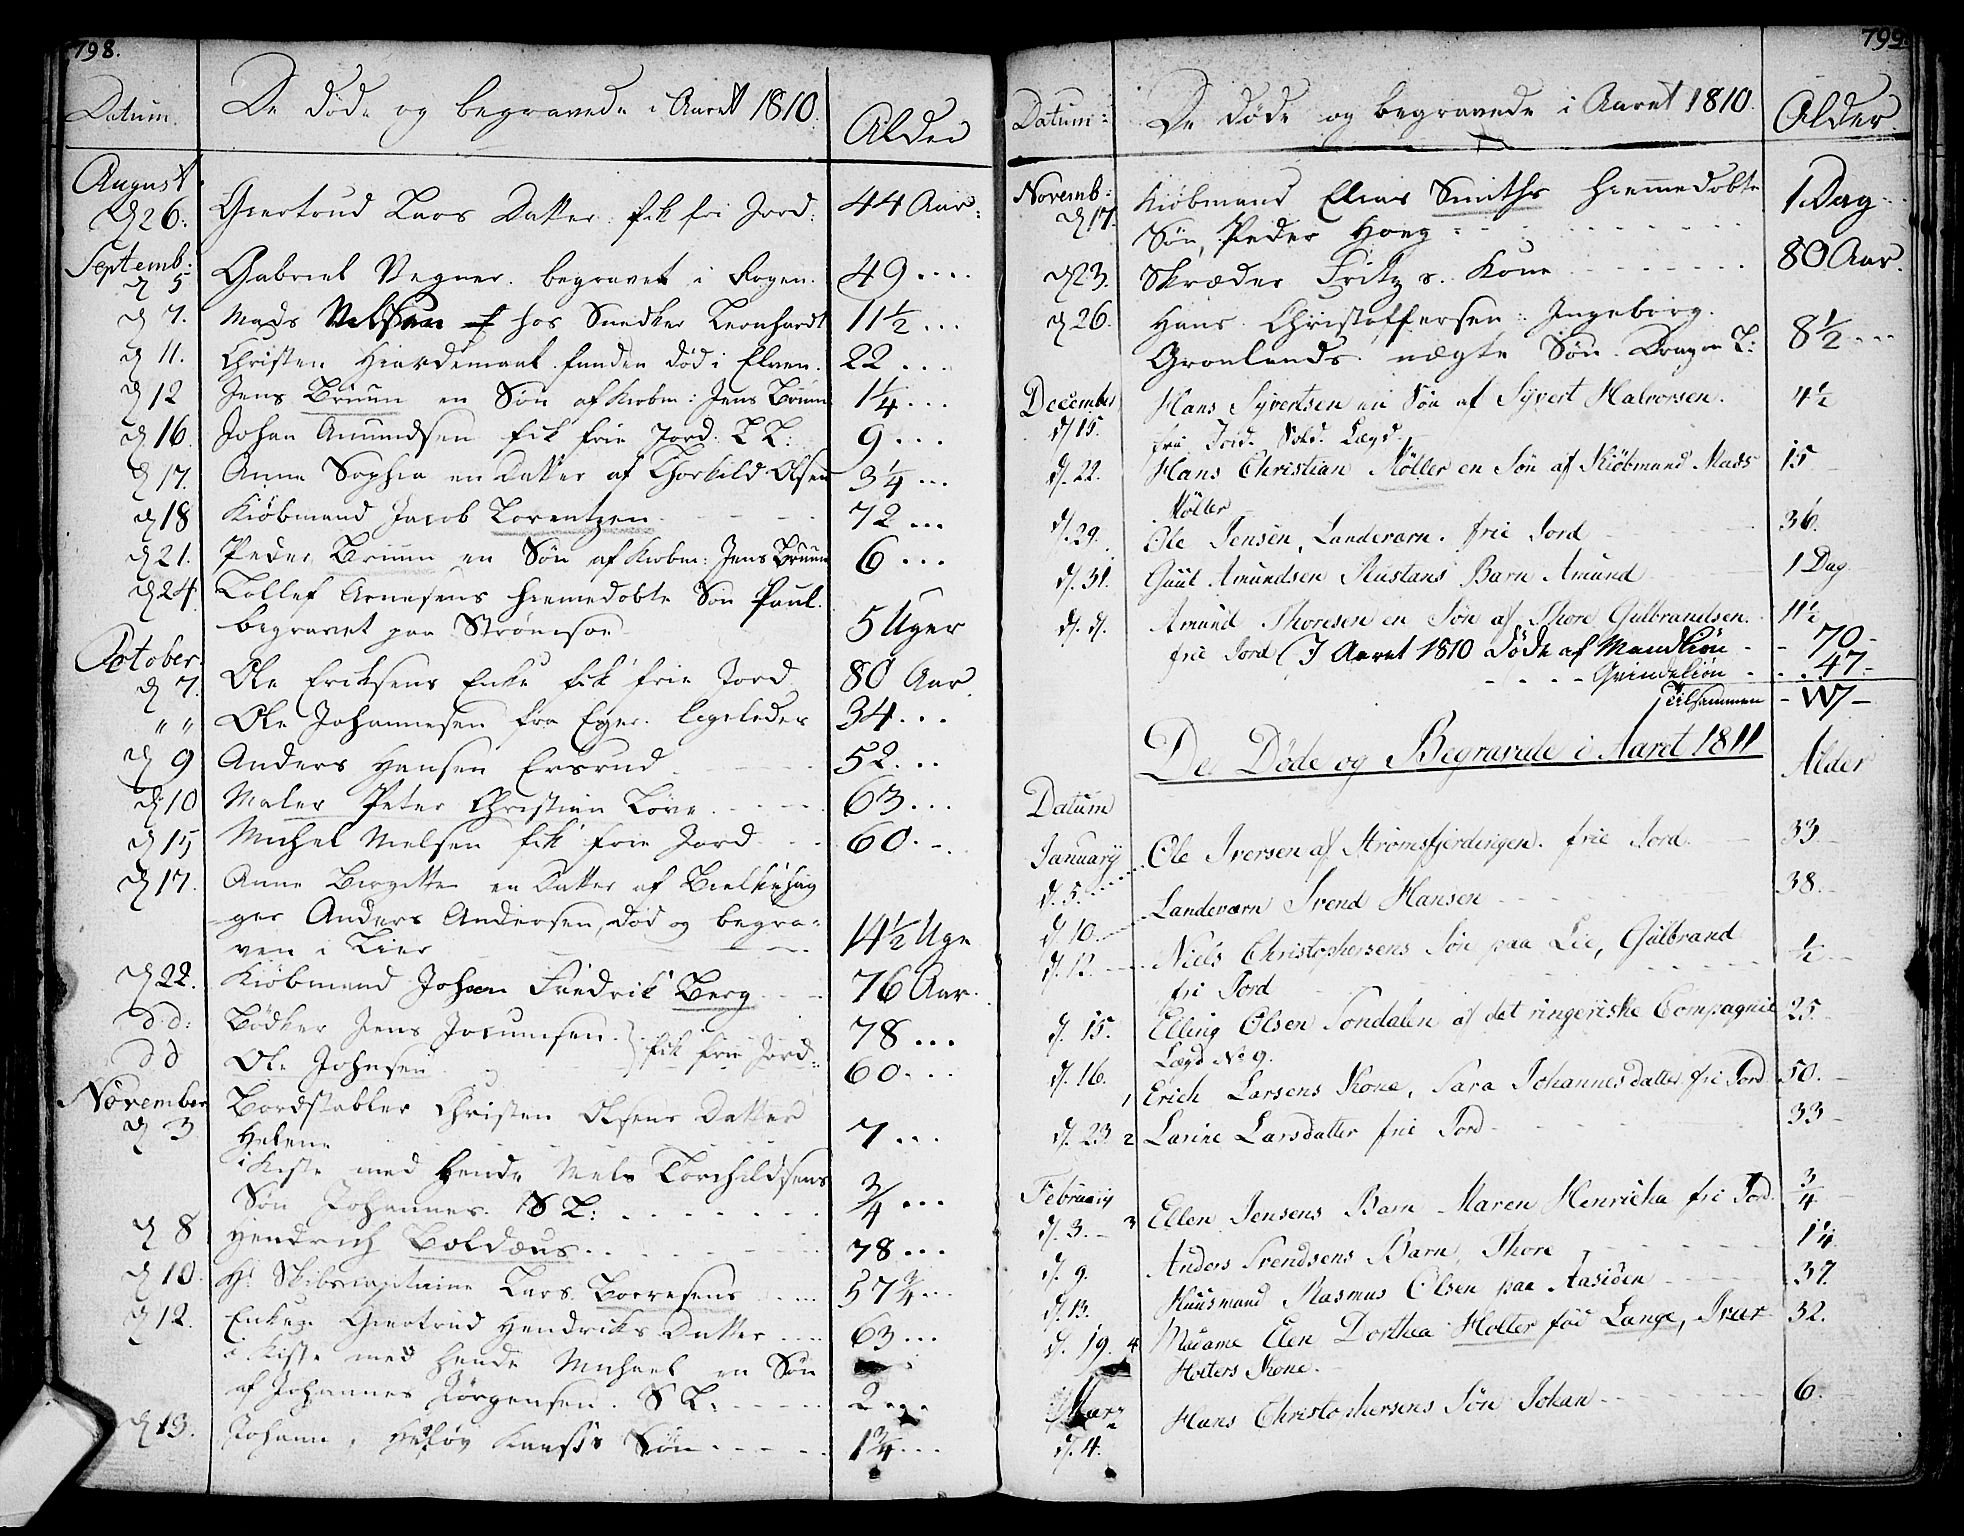 798.
Datum.
De døde og begravede i Aaret 1810.
Alder
August
d 26.
Giertrud Lars Datter. fik fri Jord.
44 Aar.
Septemb:
d 5
Gabriel Wegner. begravet i Rogen.
49
d 7.
Mads Nelsen hos Snedker Leonhardt
11½
d 11.
Christen Hierdemank funden død i Elven.
22
d 12
Jens Bruun en Søn af Kiøbm: Jens Bruun
1¼
d 16.
Johan Amundsen fik frie Jord. L L:
9
d 17.
Anne Sophia en Datter af Thorkild Olsen
3¼
d 18
Kiøbmand Jacob Lorentzen
72
d 21.
Peder Bruun en Søn af Kiøbm: Jens Bruun
6
d 24.
Tollef Arnesens hiemedøbte Søn Paul.
begravet paa Strømsøe
5 Uger
October.
d 7.
Ole Eriksens Enke fik frie Jord
80 Aar
" "
Ole Johannesen fra Eger. ligeledes
34
d 9
Anders Hansen Ersrud
52
d 10
Maler Peter Christian Løve
63
d 15
Michel Nielsen fik frie Jord
60
d 17.
Anne Birgitte en Datter af
ger Anders Andersen, død og begra-
ven i Lier
14½ Uge
d 22.
Kiøbmand Johan Fredrik Berg
76 Aar
d. d:
Bødker Jens Jocumsen.
78
fik frie Jord
d d
Ole Johnsen
60
November
d 3
Bordstabler Christen Olsens Datter
Helene
7
i Kiste med hende Niels Torchildsens
Søn Johannes. S L:
¾
d 8
Hendrich Boldæus
78
d 10.
Hr Skibscapitaine Lars Borresens
57¾
d 12.
Enken Giertrud Hendriks Datter
63
i Kiste med hende Michael en Søn
af Johannes Jørgensen. S L.
2
d 13.
Johann, Knafs's Søn
1¾
799.
Datum:
De døde og begravede i Aaret 1810.
Alder
Novemb:
d 17.
Kiøbmand Elias Smiths hiemmedøbte
Søn, Peder Hoeg
1 Dag
d 23.
Skræder Fritz's. Kone
80 Aar.
d 26.
Hans Christoffersen: Ingeborg.
Grønlands nægte Søn. Dragon L:
8½
December
d 15.
Hans Syvertsen en Søn af Syvert Halvorsen.
4½
frie Jord. Sold. Lægd
d. 22.
Hans Christian Møller en Søn af Kiøbmand Mads
15
Møller
d. 29.
Ole Jensen, Landeværn. frie Jord
36.
d. 31.
Guul Amundsen Rustans Barn Amund
1 Dag.
d. d.
Amund Thoresen en Søn af Thore Gulbrandsen.
11½
frie Jord (I Aaret 1810 døde af Mandkiøn
- 70 -
Qvindekiøn
47 -
Tilsammen
- 117 -
De Døde og Begravede i Aaret 1811
Alder
Datum
January
d. 5.
Ole Iversen af Strømsfjerdingen. frie Jord.
33
d. 10.
Landeværn Svend Hansen
38.
d. 12.
Niels Christophersens Søn paa Lie, Gulbrand
½
fri Jord
d. 15.
Elling Olsen Søndalen af det ringeriske Compagnie
25.
Lægd No 9.
d. 16.
1
Erich Larsens Kone, Sara Johannesdatter fri Jord
50.
d. 23
2
Larine Larsdatter frie Jord
33
February
d. 3.
3
Ellen Jensens Barn Maren Henricha fri Jord.
¾
d. 9.
Anders Svendsens Barn, Thore
1¼
d. 13.
Huusmand Rasmus Olsen paa Aasiden
37.
d. 19.
4
Madame Elen Dorthea Holter fød Lange, Iver
32.
Holters Kone.
Marz
d. 4.
Hans Christophersens Søn Johan
6.